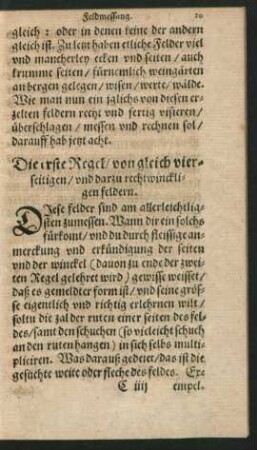 Feldmessung. 10
gleich: oder in denen keine der andern
gleich ist. Zu letzt haben etliche Felder viel
vnd mancherley ecken vnd seiten / auch
krumme seiten / fürnemlich weingärten
an bergen gelegen / wisen / werte / wälde.
Wie man nun ein jglichs von diesen er-
zelten feldern recht vnd fertig visieren /
überschlagen / messen vnd rechnen sol /
darauff hab jetzt acht.
Die erste Regel / von gleich vier-
seitigen / vnd darzu rechtwinckli-
gen feldern.
DIese felder sind am allerleichtlig-
sten zumessen. Wann dir ein solchs
fürkomt / vnd du durch fleissige an-
merckung vnd erkündigung der seiten
vnd der winckel (dauon zu ende der zwei-
ten Regel gelehret wird) gewisse weissest /
daß es gemeldter form ist / vnd seine größ-
se eigentlich vnd richtig erlehrnen wilt /
soltu die zal der ruten einer seiten des fel-
des / samt den schuchen (so vieleicht schuch
an den ruten hangen) in sich selbs multi-
pliciren. Was darauß gedeiet / das ist die
gesuchte weite oder fleche des feldes. Exe-
C iiij empel.